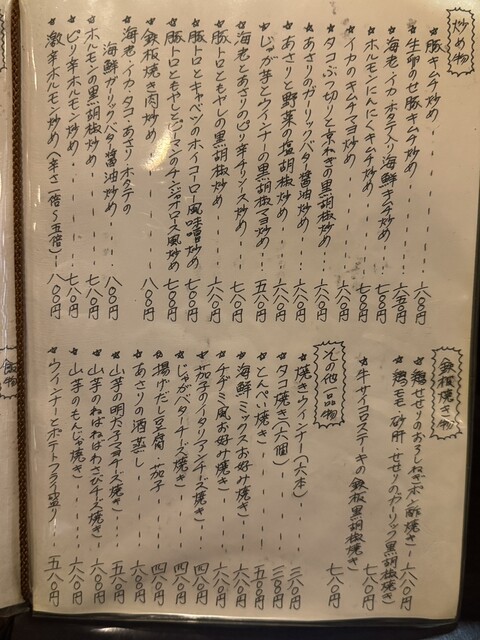 炒め物
☆豚キムチ炒め 六〇〇円
☆生卵のせ豚キムチ炒め 六五〇円
☆海老・イカ・ホタテ入り海鮮キムチ炒め 七〇〇円
☆ホルモンにんにくキムチ炒め 七〇〇円
☆イカのキムチマヨ炒め 六〇〇円
☆タコぶつ切りと京ねぎの黒胡椒炒め 六〇〇円
☆あさりのガーリックバター醤油炒め 六〇〇円
☆あさりと野菜の塩胡椒炒め 六八〇円
☆じゃが芋とウインナーの黒胡椒マヨ炒め 五八〇円
☆海老とあさりのピリ辛チリソース炒め 七〇〇円
☆豚トロともやしの黒胡椒炒め 六八〇円
☆豚トロとキャベツのホイコーロー風味噌炒め 七〇〇円
☆豚トロともやしとピーマンのチンジャオロース風炒め 七〇〇円
☆鉄板焼き肉炒め 八〇〇円
☆海老・イカ・タコ・あさり・ホタテの
海鮮ガーリックバター醤油炒め 八〇〇円
☆ホルモンの黒胡椒炒め 七八〇円
☆ピリ辛ホルモン炒め 七八〇円
☆激辛ホルモン炒め（辛さ二倍〜五倍） 八〇〇円
鉄板焼き物
☆鶏せせりのおろしねぎポン酢焼き 六八〇円
☆鶏モモ・砂肝・せせりのガーリック黒胡椒焼き 七八〇円
☆牛サイコロステーキの鉄板黒胡椒焼き 七八〇円
その他一品物
☆焼きウインナー（六本） 三八〇円
☆タコ焼き（六個） 三八〇円
☆とんぺい焼き 五〇〇円
☆海鮮ミックスお好み焼き 六八〇円
☆チヂミ風お好み焼き 六八〇円
☆茄子のイタリアンチーズ焼き 四八〇円
☆じゃがバターチーズ焼き 四八〇円
☆揚げだし豆腐・茄子 四八〇円
☆あさりの酒蒸し 六〇〇円
☆山芋の明太子マヨチーズ焼き 五八〇円
☆山芋のねばねばわさびチーズ焼き 六八〇円
☆山芋のもんじゃ焼き 六八〇円
☆ウインナーとポテトフライ盛り 五八〇円